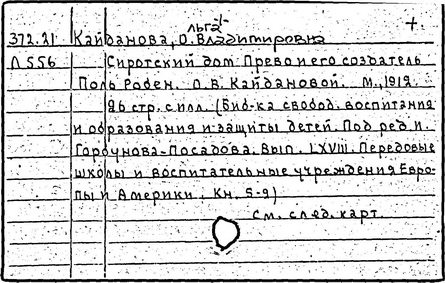 льга
+
372.21 Кайданова, О. Владимировна
Л 556 Сиротский дом Прево и его создатель
Поль Робен. О.В. Кайдановой. М., 1912.
96 стр. с илл. (Биб-ка свобод. воспитания
и образования и защиты детей. Под ред. И.
Горбунова-Посадова. Вып. LXVIII. Передовые
школы и воспитательные учреждения Евро-
пы и Америки. Кн. 5-я)
См. след. карт.